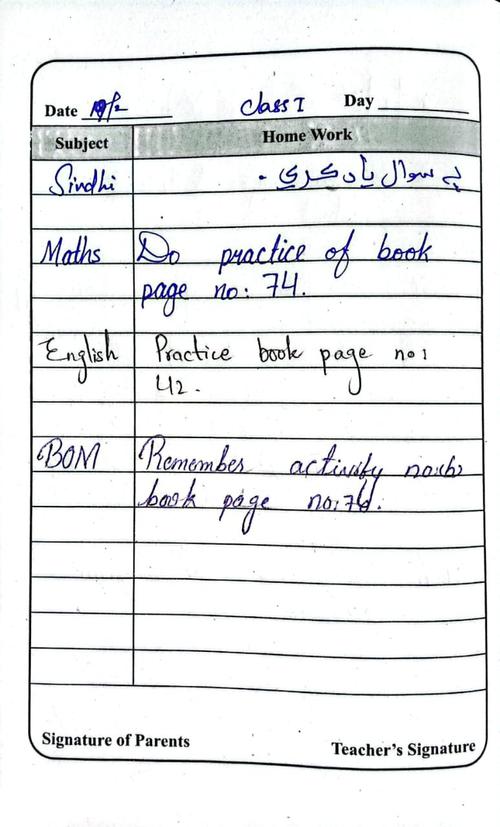 Date Class I Day
Subject Home Work
Sindhi سوال ياد ڪري .
Maths Do practice of book
page no: 74.
English Practice book page no:
42.
BOM Remember activity
book page no:
Signature of Parents Teacher's Signature